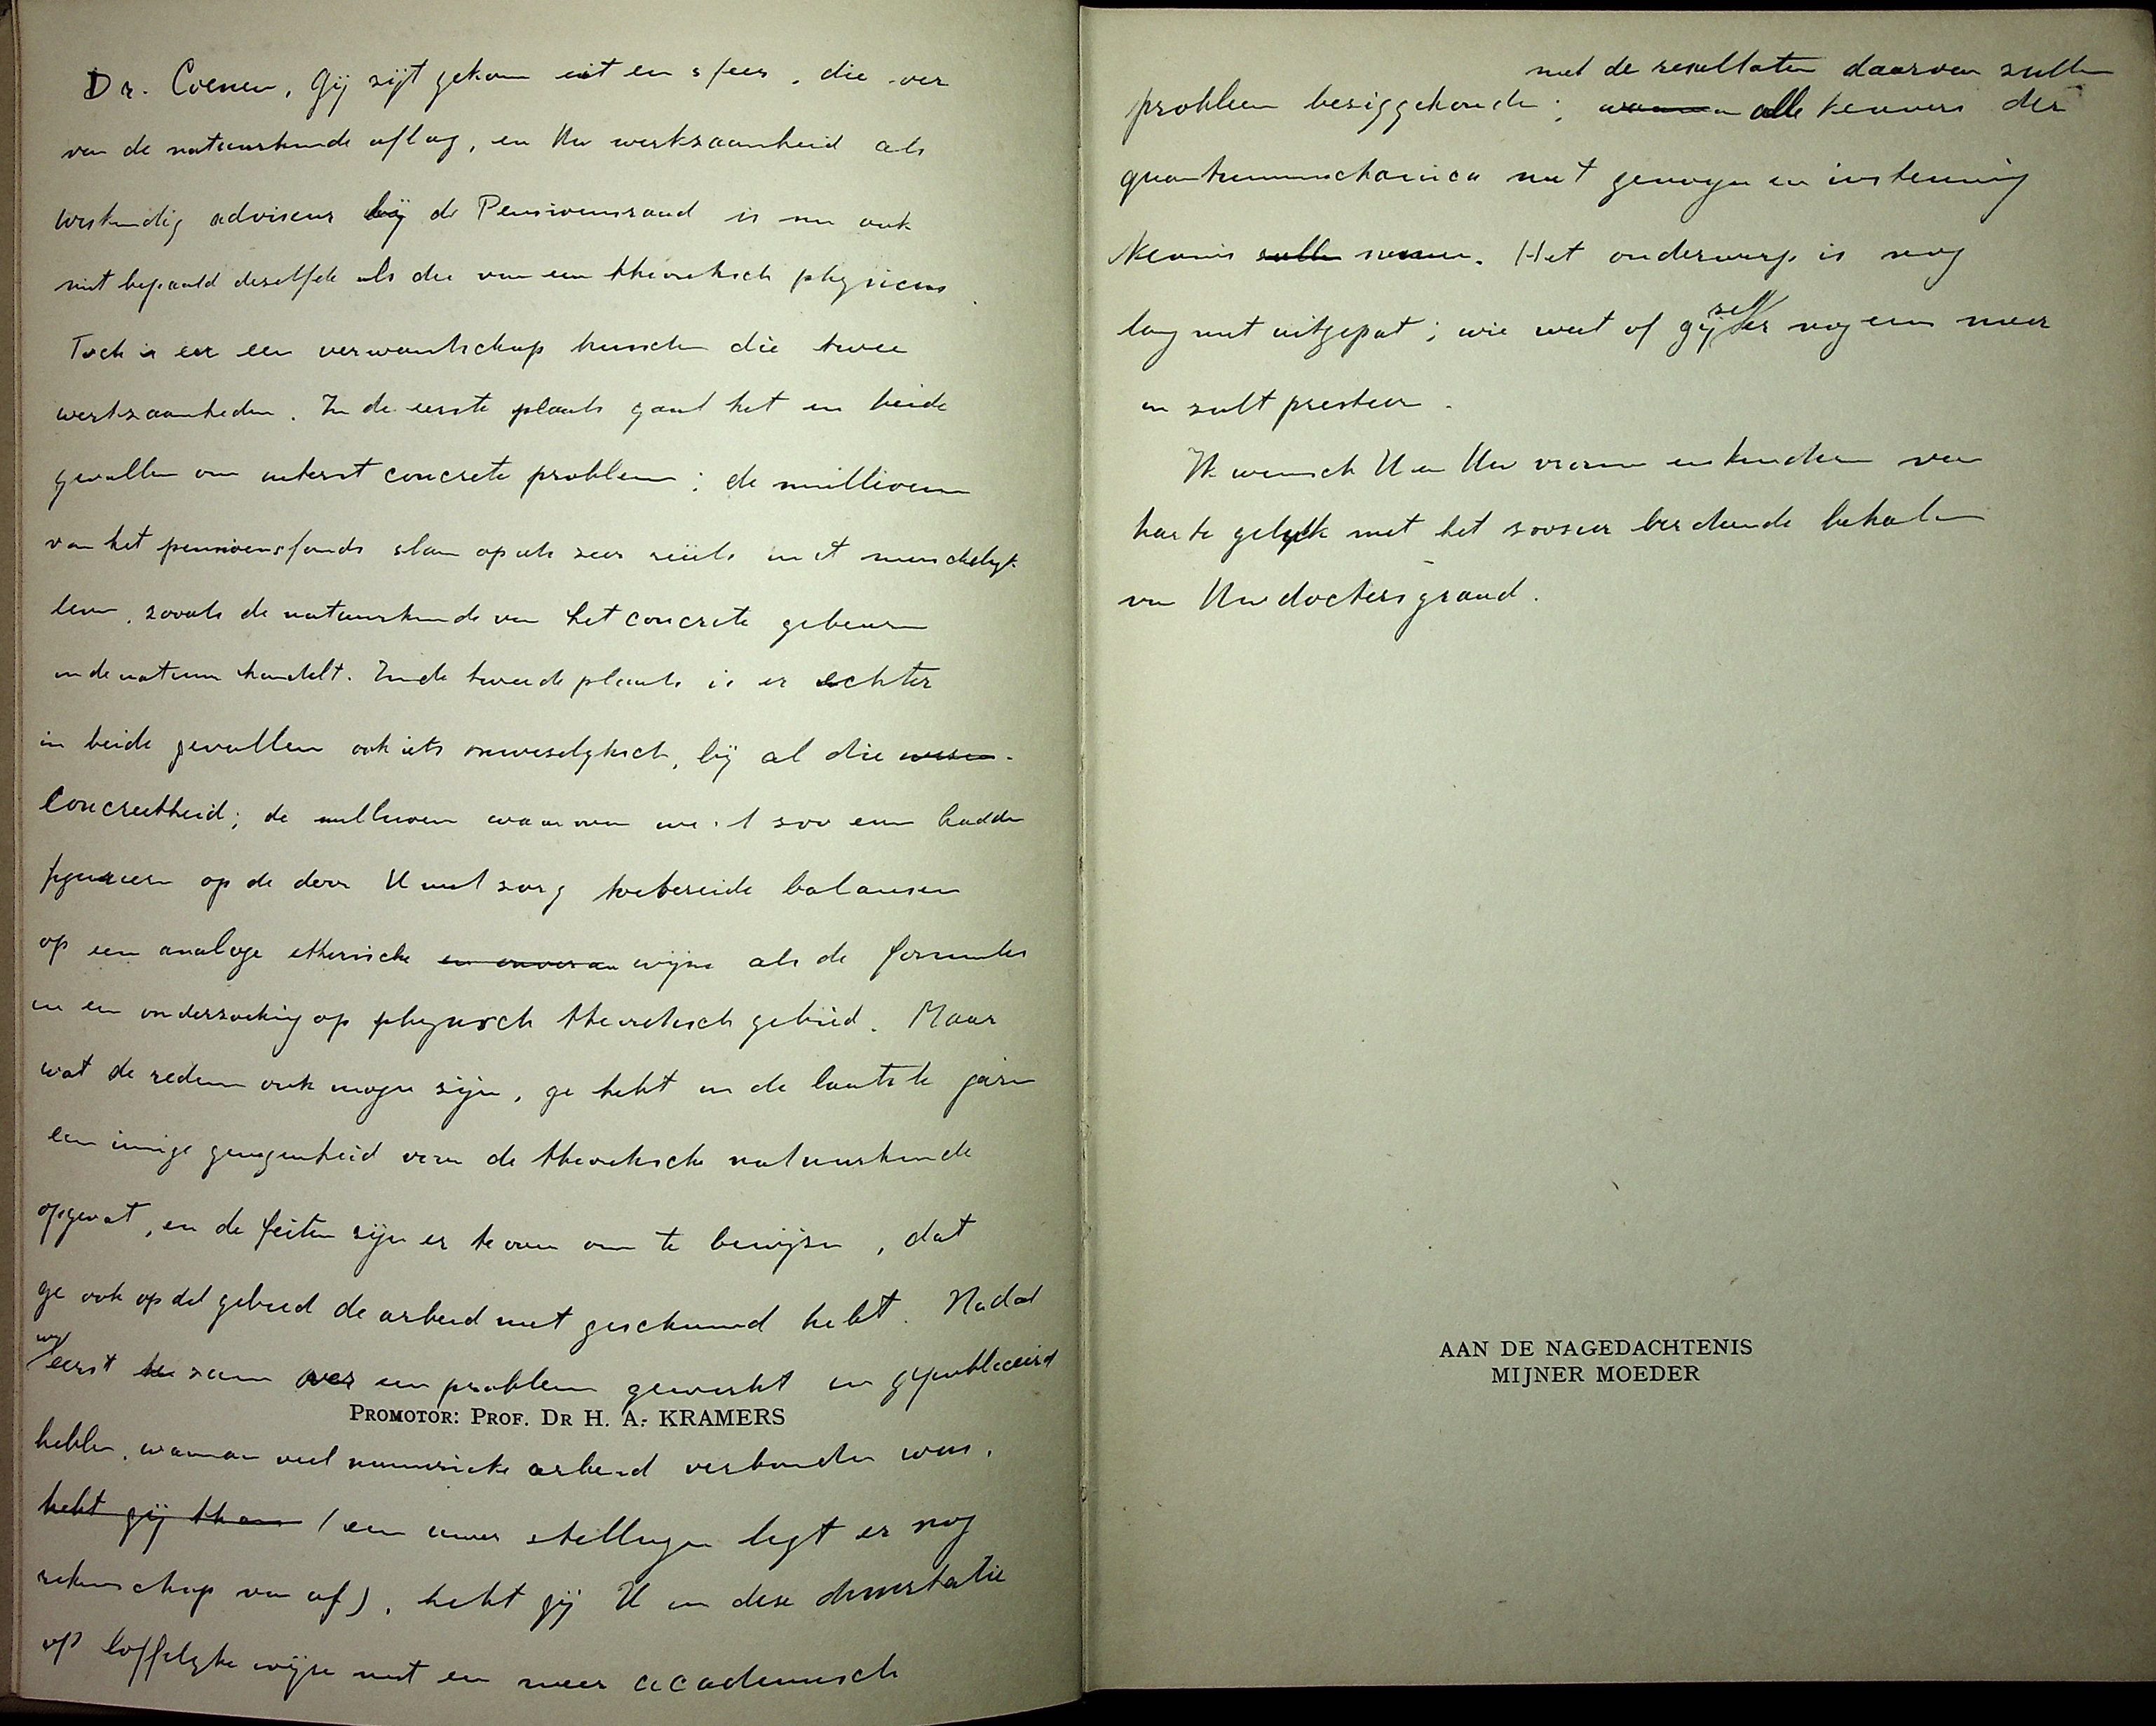 Dr. Coenen, Gij zijt gekomen uit een sfeer, die ver
van de natuurkunde aflag, en Uw werkzaamheid als
wiskundig adviseur bij de Pensioensraad is nu ook
niet bepaald dezelfde als die van een theoretisch physicus.
Toch is er een verwantschap tusschen die twee
werkzaamheden. In de eerste plaats gaat het in beide
gevallen om uiterst concrete problemen: de millioenen
van het pensioensfonds slaan op iets zeer reëels in 't menschelijk
leven, zooals de natuurkunde van het concrete gebeuren
in de natuur handelt. In de tweede plaats is er echter
in beide gevallen ook iets onwezelijksch, bij al die wezen-
concreetheid; de millioenen waarvan we 't zoo even hadden
figureeren op de door U met zorg toebereide balansen
op een analoge etherische en onveran wijze als de formules
in een onderzoeking op physisch theoretisch gebied. Maar
wat de redenen ook mogen zijn, ge hebt in de laatste jaren
een innige genegenheid voor de theoretische natuurkunde
opgevat, en de feiten zijn er te over om te bewijzen, dat
ge ook op dit gebied de arbeid niet geschuwd hebt. Nadat
wij
eerst te zamen over een probleem gewerkt en gepubliceerd
PROMOTOR: PROF. DR H. A. KRAMERS
hebben, waaraan veel numerieke arbeid verbonden was,
hebt gij thans (een uwer stellingen legt er nog
rekenschap van af), hebt gij U in deze dissertatie
op loffelijke wijze met een meer academisch
met de resultaten daarvan zullen
probleem beziggehouden; waarvan alle kenners der
quantummechanica met genoegen en instemming
kennis zullen nemen. Het onderwerp is nog
lang niet uitgeput; wie weet of gij
zelf
er nog eens meer
in zult presteeren.
Ik wensch U en Uw vrouw en kinderen van
harte geluk met het zoozeer verdiende behalen
van Uw doctersgraad.
AAN DE NAGEDACHTENIS
MIJNER MOEDER